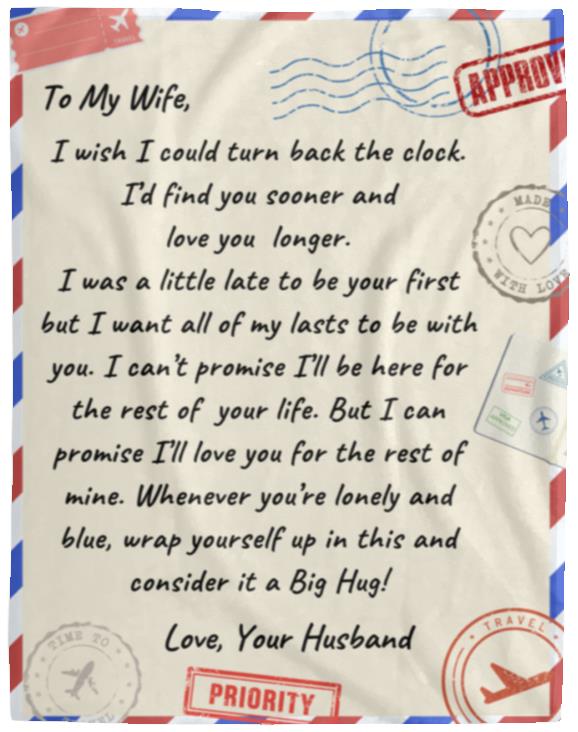 TRAVEL
APPROV
To My Wife,
I wish I could turn back the clock.
I'd find you sooner and
love you longer.
I was a little late to be your first
but I want all of my lasts to be with
you. I can't promise I'll be here for
the rest of your life. But I can
promise I'll love you for the rest of
mine. Whenever you're lonely and
blue, wrap yourself up in this and
consider it a Big Hug!
Love, Your Husband
MADE
WITH LOVE
TIME TO
PRIORITY
TRAVEL